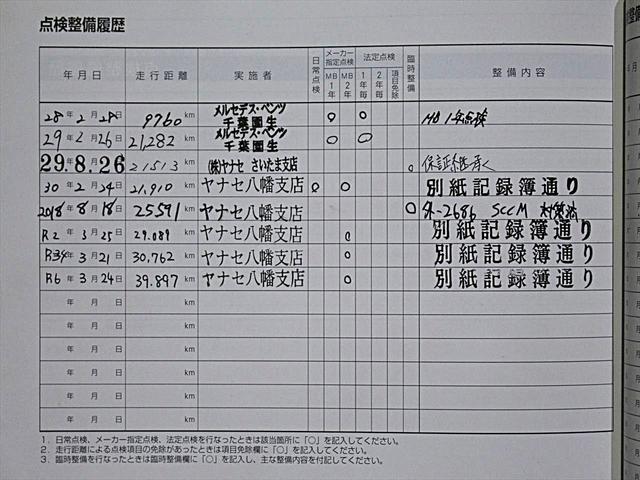 点検整備履歴
年月日 走行距離 実施者 日常点検 メーカー指定点検 MB1年 MB2年 法定点検 1年毎 2年毎 項目免除 臨時整備 整備内容
28年2月28日 9760 km メルセデス・ベンツ千葉園生 ○ ○
29年2月26日 21,282 km メルセデス・ベンツ千葉園生 ○ ○
29.8.26 21513 km (株)ヤナセ さいたま支店 ○ 保証継承
30年2月24日 21,910 km ヤナセ八幡支店 ○ ○ 別紙記録簿通り
2018年8月18日 25591 km ヤナセ八幡支店 ○ 外-2686 SCCM 対策済
R2年3月25日 29.089 km ヤナセ八幡支店 ○ 別紙記録簿通り
3月21日 30,762 km ヤナセ八幡支店 ○ 別紙記録簿通り
R6年3月24日 39.897 km ヤナセ八幡支店 ○ 別紙記録簿通り
年月日 km
年月日 km
年月日 km
年月日 km
年月日 km
年月日 km
1. 日常点検、メーカー指定点検、法定点検を行なったときは該当箇所に「○」を記入してください。
2. 走行距離による点検項目の免除があったときは項目免除欄に「○」を記入してください。
3. 臨時整備を行なったときは臨時整備欄に「○」を記入し、主な整備内容を付記してください。